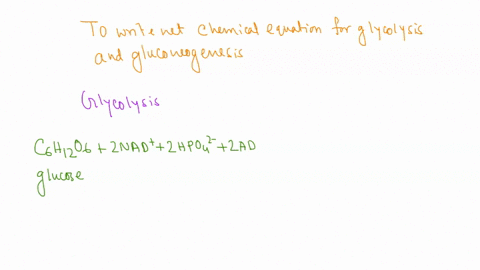 To write net chemical equation for glycolysis
and gluconeogenesis
Glycolysis
C₆H₁₂O₆ + 2NAD⁺ + 2HPO₄²⁻ + 2AD
glucose